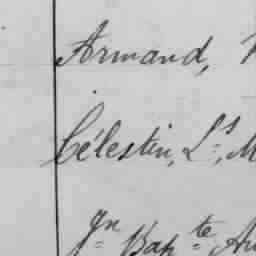 Armand,
Célestin, Ls, M
Jn Bapte, Au